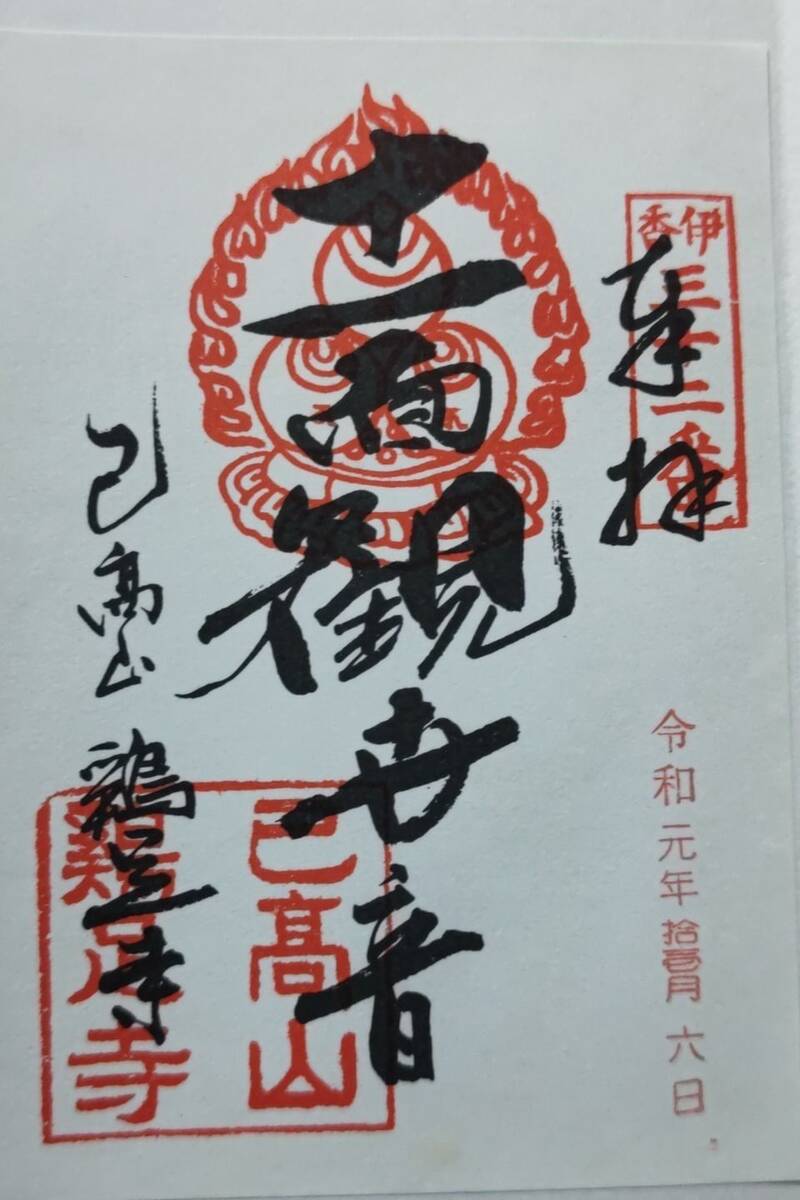 伊香
三十二番
奉拝
令和元年拾壱月六日
十一面観世音
己高山
己髙山 鶏足寺
鶏足寺